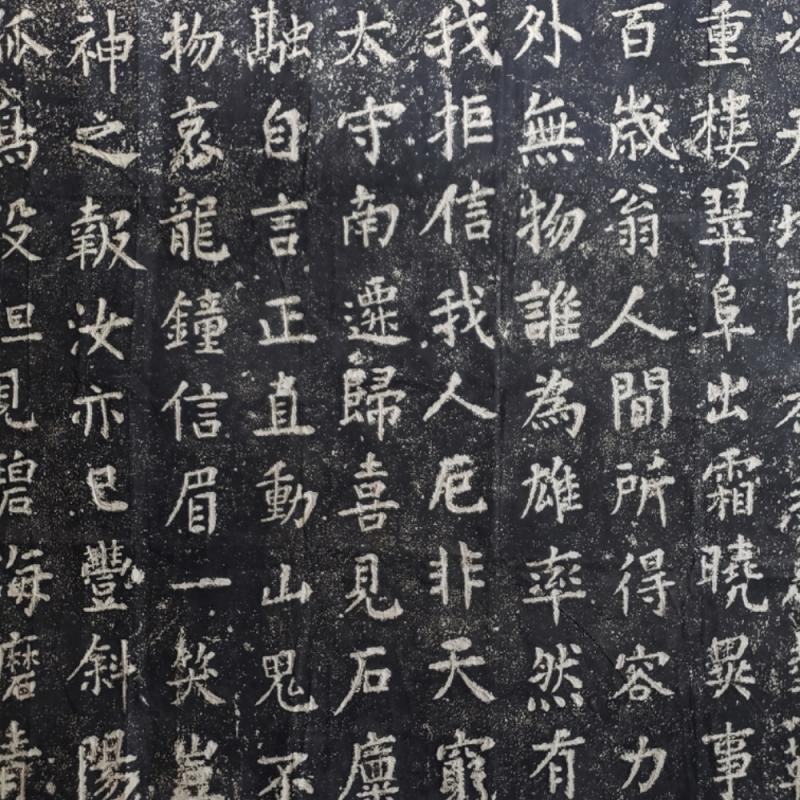 重樓翠阜出霜曉異事
百歲翁人間所得容力
外無物誰為雄率然有
我拒信我人厄非天窮
太守南遷歸喜見石廩
融自言正直動山鬼不
物哀龍鐘信眉一笑豈
神之報汝亦已豐斜陽
孤鳥没但見碧海磨青